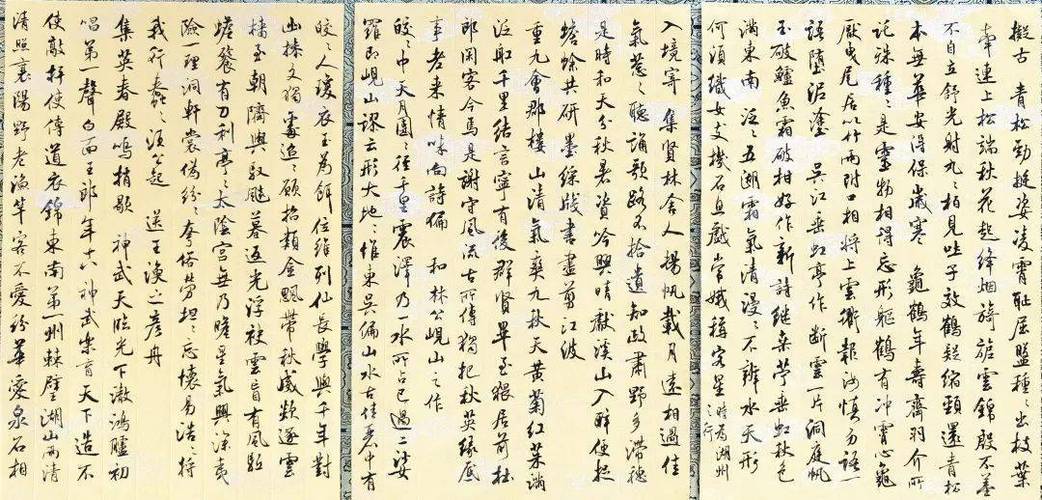 擬古 青松勁挺姿凌霄耻屈盤種〻出枝葉
牽連上松端秋花起絳烟旖旎雲錦殷不羞
不自立舒光射丸〻柏見吐子效鶴疑縮頸還青松
本無華安得保歲寒 龜鶴年壽齊羽介所
託殊種〻是靈物相得忘形軀鶴有冲霄心龜
厭曳尾居以竹兩附口相將上雲衢報汝慎勿語一
語墮泥塗 吳江垂虹亭作 斷雲一片洞庭帆
玉破鱸魚霜破柑好作新詩繼桑苧垂虹秋色
滿東南 泛〻五湖霜氣清漫〻不辨水天形
何須織女支機石且戲常娥稱客星 時為湖州之行
入境寄 集賢林舍人 揚帆載月遠相過佳
氣葱〻聽誦歌路不拾遺知政肅野多滯穗
是時和天分秋暑資吟興晴獻溪山入醉便捉
蟾蜍共研墨綵牋書盡剪江波
重九會郡樓 山清氣爽九秋天黃菊紅茱滿
泛船千里結言寧有後群賢畢至猥居前杜
郎閑客今焉是謝守風流古所傳獨把秋英緣底
事老來情味向詩偏 和林公峴山之作
皎〻中天月團〻徑千里震澤乃一水所占已過二娑
羅即峴山謬云形大地〻惟東吳偏山水古佳麗中有
皎〻人瓊衣玉為餌位維列仙長學與千年對
幽操久獨處迢〻願招類金颸帶秋威欻逐雲
檣至朝隮輿馭飇暮返光浮袂雲盲有風駈
蟾餮有刀利亭〻太陰宮無乃瞻星氣興深夷
險一理洞軒裳偽紛〻夸俗勞坦〻忘懷易浩〻將
我行蠢〻須公起 送王渙之彥舟
集英春殿鳴捎歇 神武天臨光下澈鴻臚初
唱第一聲白面王郎年十八神武樂育天下造不
使敲抨使傳道衣錦東南第一州棘璧湖山兩清
清照襄陽野老漁竿客不愛紛華愛泉石相